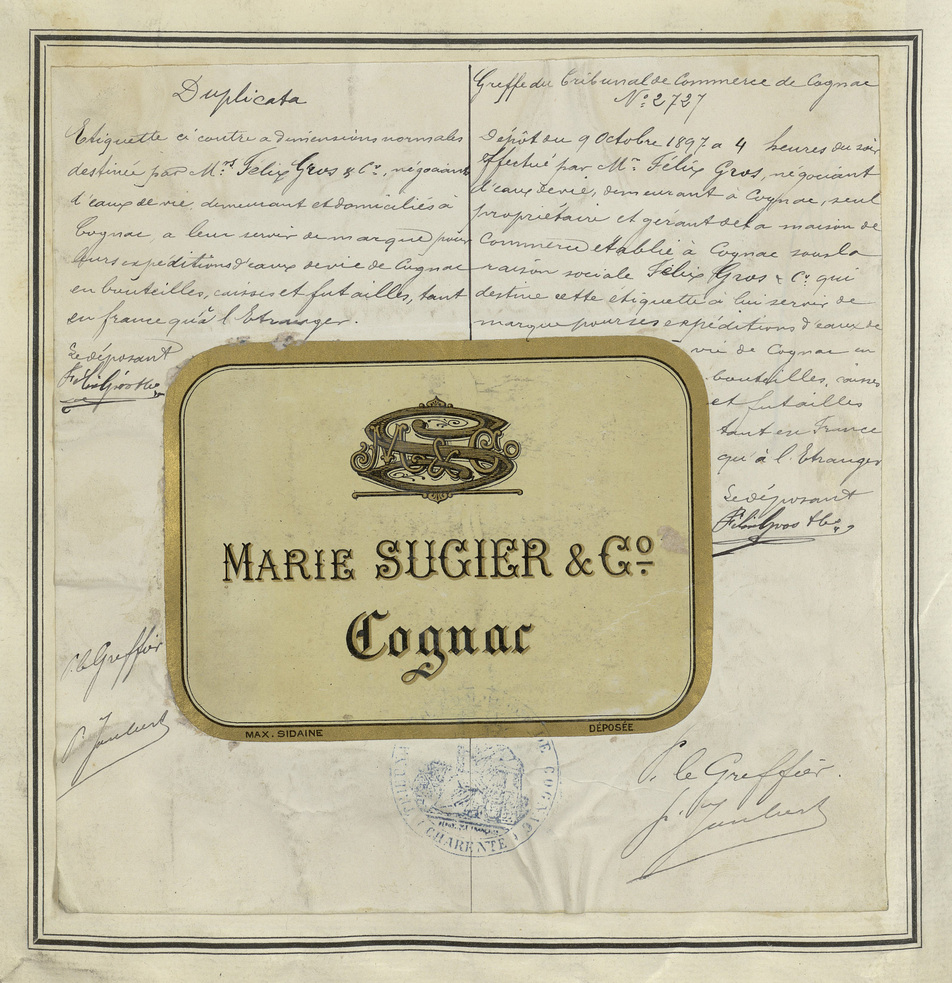 Duplicata
Etiquette ci contre a dimensions normales
destinée par M.rs Félix Gros & Cie, négociants
d'eaux de vie demeurant et domiciliés à
Cognac, a leur servir de marque pour
leurs expéditions d'eaux de vie de Cognac
en bouteilles, caisses et futailles, tant
en france qu'à l'Etranger.
Le déposant
Félix Gros & Cie
Greffe du Tribunal de Commerce de Cognac
No. 2727
Dépôt du 9 Octobre 1897 a 4 heures du soir
Effectué par Mr. Félix Gros, négociant
d'eaux de vie, demeurant à Cognac, seul
propriétaire et gérant de la maison de
Commerce établie à Cognac sous la
raison sociale Félix Gros & Cie qui
destine cette étiquette a lui servir de
marque pour ses expéditions d'eaux de
vie de Cognac en
bouteilles, caisses
et futailles
tant en France
qu'à l'Etranger
Le déposant
Félix Gros & Cie
MS & Co
MARIE SUGIER & Co
Cognac
MAX. SIDAINE
DÉPOSÉE
P. le Greffier
P. Joubert
DE COGNAC
(CHARENTE)
P. le Greffier.
P. Joubert